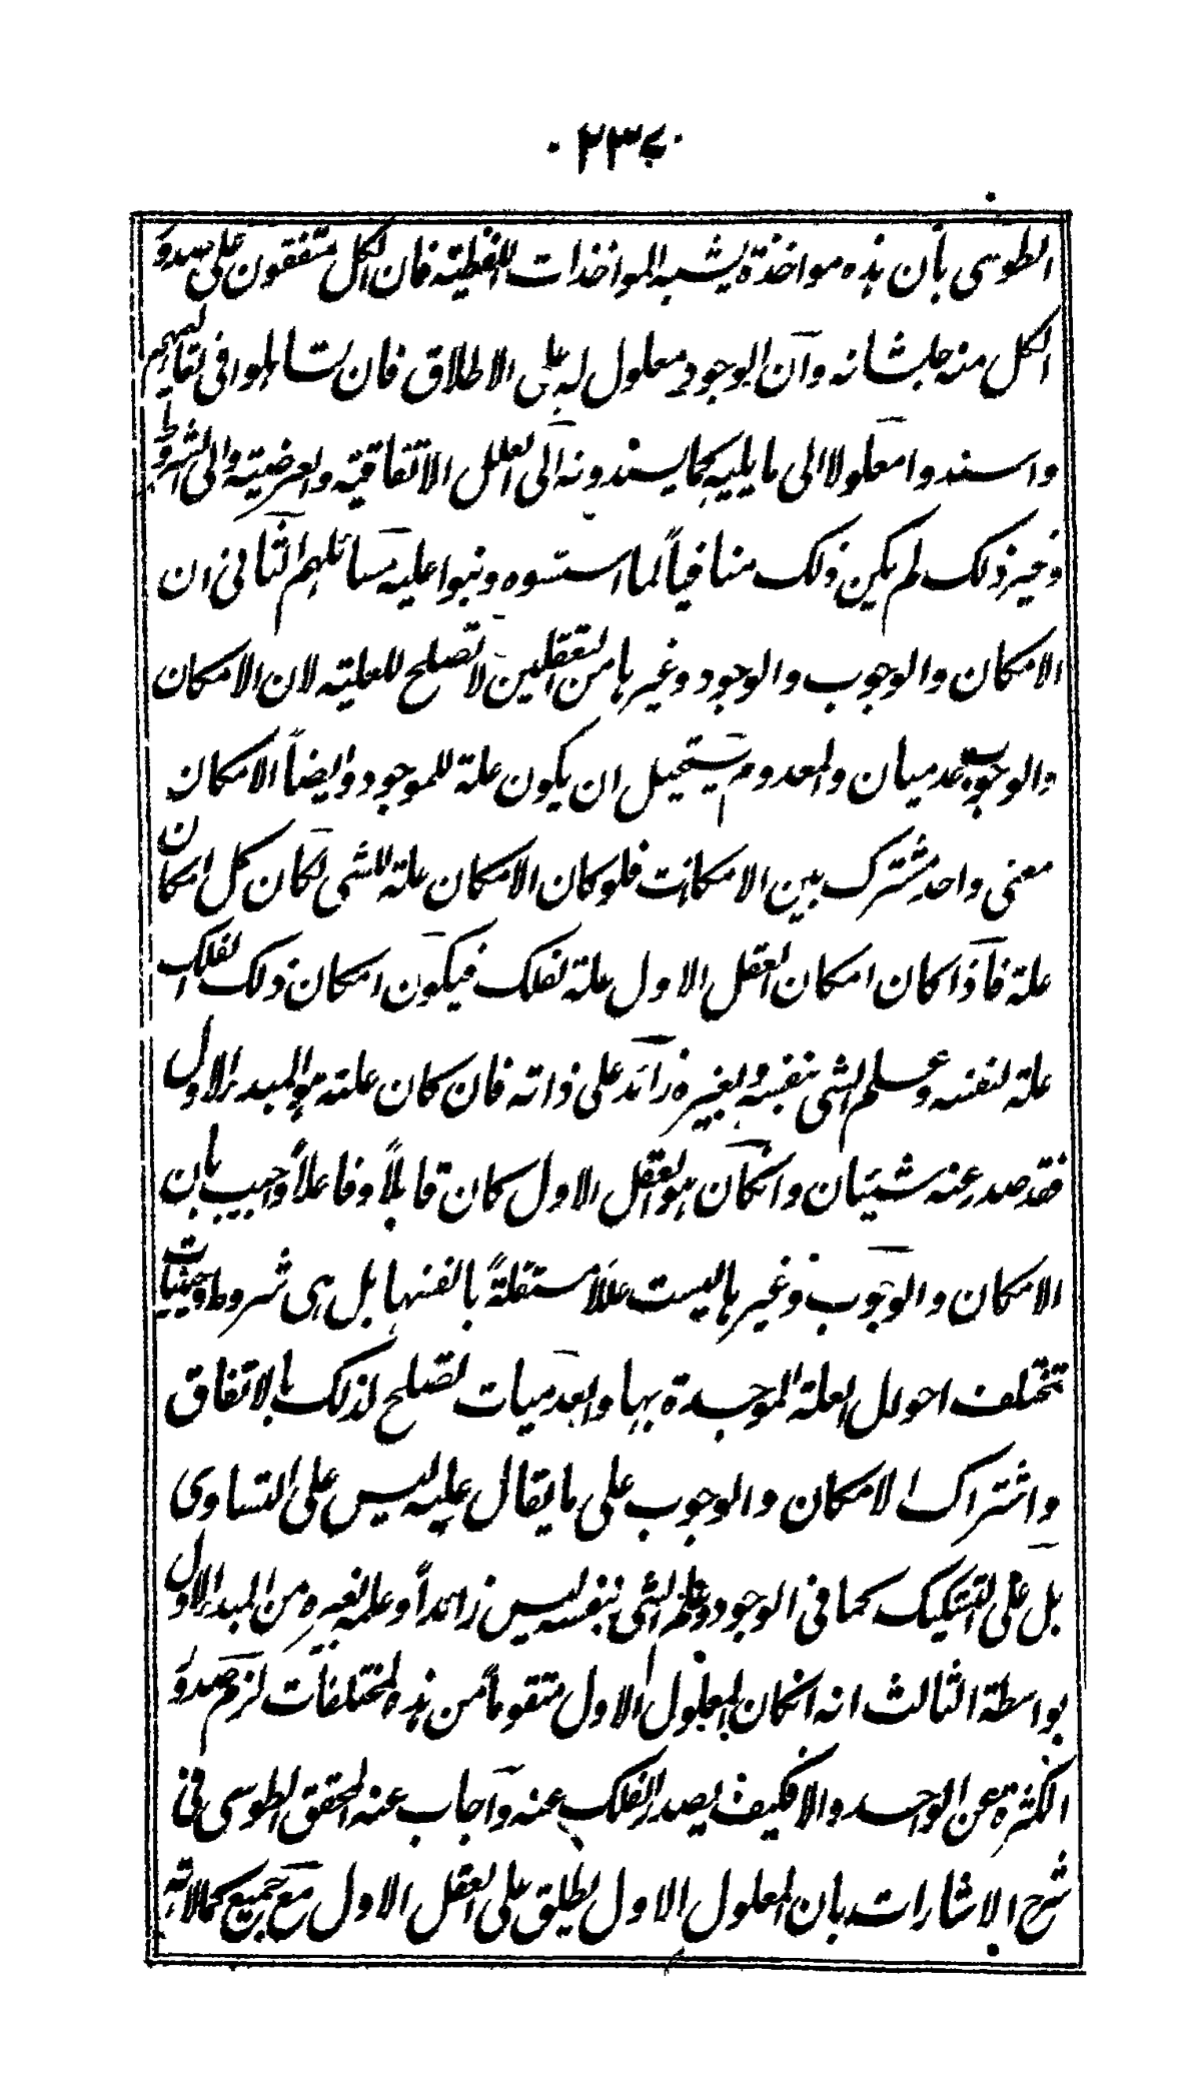 ٢٣٤
الطوسى بأن هذه مواخذة يشبه المواخذات اللفظية فان الكل متفقون على صدور
الكل منه جل شانه وان الوجود معلول له على الاطلاق فان تساهلوا فى تعاليمهم
واسندوا معلولا الى ما يليه كما يسندونه الى العلل الاتفاقية والعرضية والى الشروط
وغير ذلك لم يكن ذلك منافياً لما اسسوه وبنوا عليه مسائلهم الثانى ان
الامكان والوجوب والوجود وغيرها من التعقلين لا تصلح للعلية لان الامكان
والوجوب عدميان والمعدوم يستحيل ان يكون علة للموجود وايضاً الامكان
معنى واحد مشترك بين الامكانات فلو كان الامكان علة للشى لكان كل امكان
علة فاذا كان امكان العقل الاول علة لفلك فيكون امكان ذلك الفلك
علة لنفسه وعلم الشى بنفسه ولغيره زائد على ذاته فان كان علته هو المبدء الاول
فقد صدر عنه شيئان وانكان هو العقل الاول كان قابلاً وفاعلاً واجيب بان
الامكان والوجوب وغيرها ليست عللاً مستقلةً بانفسها بل هى شروط وحيثيات
تختلف احوال العلة الموجدة بها والعدميات تصلح لذلك بالاتفاق
واشتراك الامكان والوجوب على ما يقال عليه ليس على التساوى
بل على التشكيك كما فى الوجود وعلم الشى بنفسه ليس زائداً وعلمه لغيره من المبدء الاول
بواسطة الثالث انه انكان المعلول الاول متقوماً من هذه المختلفات لزم صدور
الكثرة عن الواحد والا فكيف يصدر الفلك عنه واجاب عنه المحقق الطوسى فى
شرح الاشارات بان المعلول الاول يطلق على العقل الاول مع جميع كمالاته